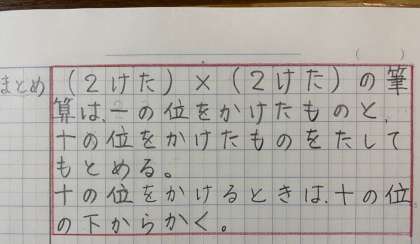 まとめ
(2けた)×(2けた)の筆
算は、一の位をかけたものと、
十の位をかけたものをたして
もとめる。
十の位をかけるときは、十の位
の下からかく。